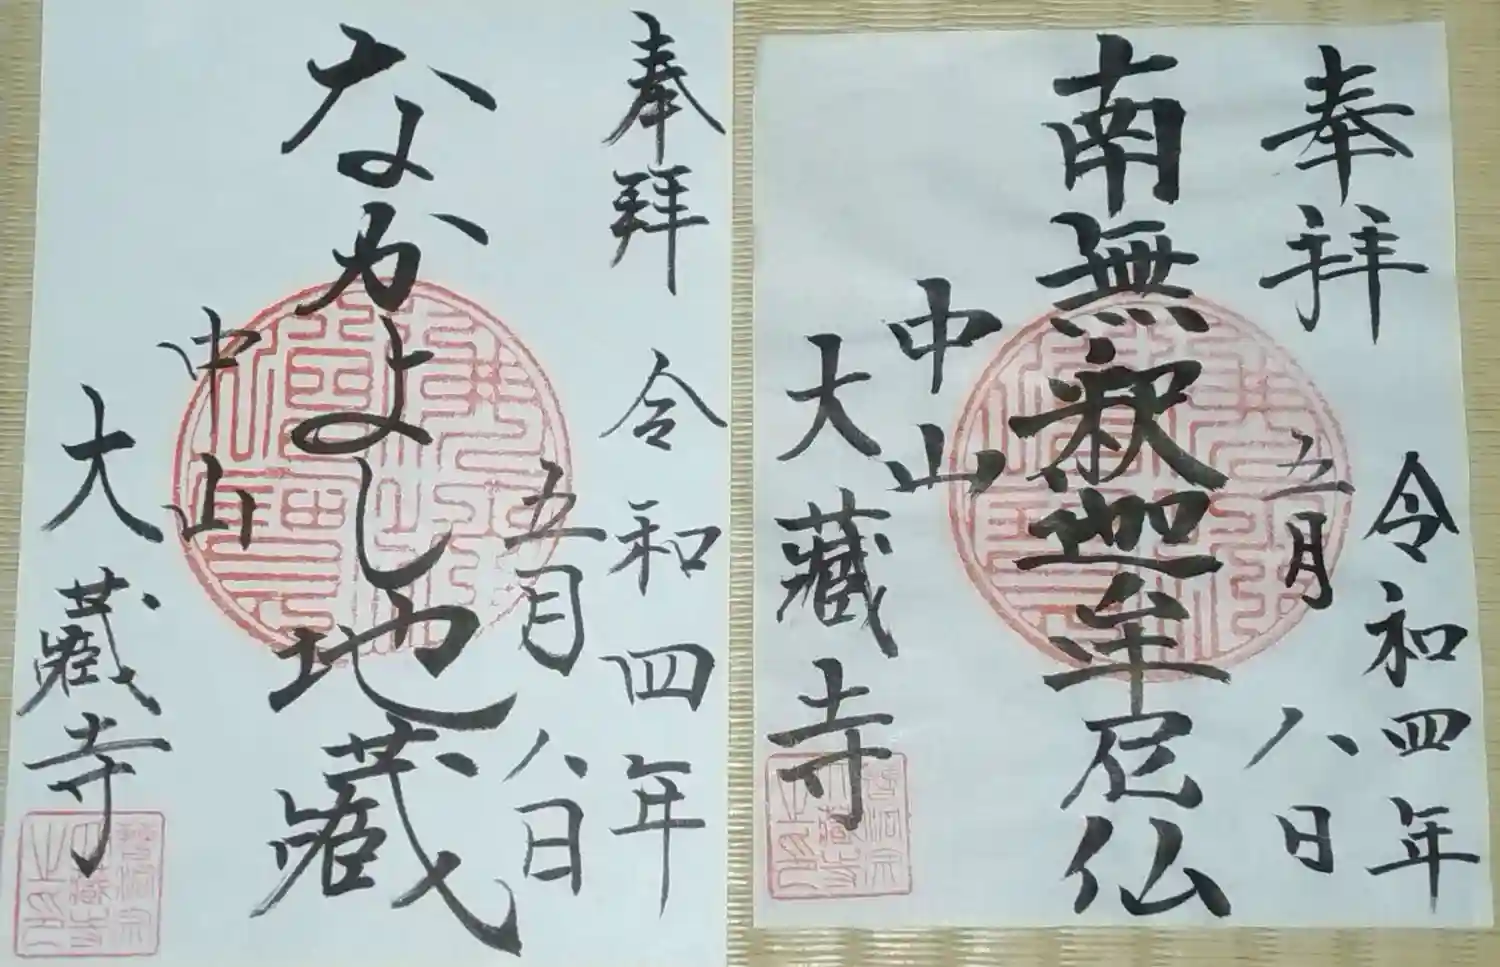 奉拜 令和四年
五月八日
なかよし地藏
中山
大藏寺
奉拝
令和四年
五月八日
南無釈迦牟尼仏
中山
大藏寺